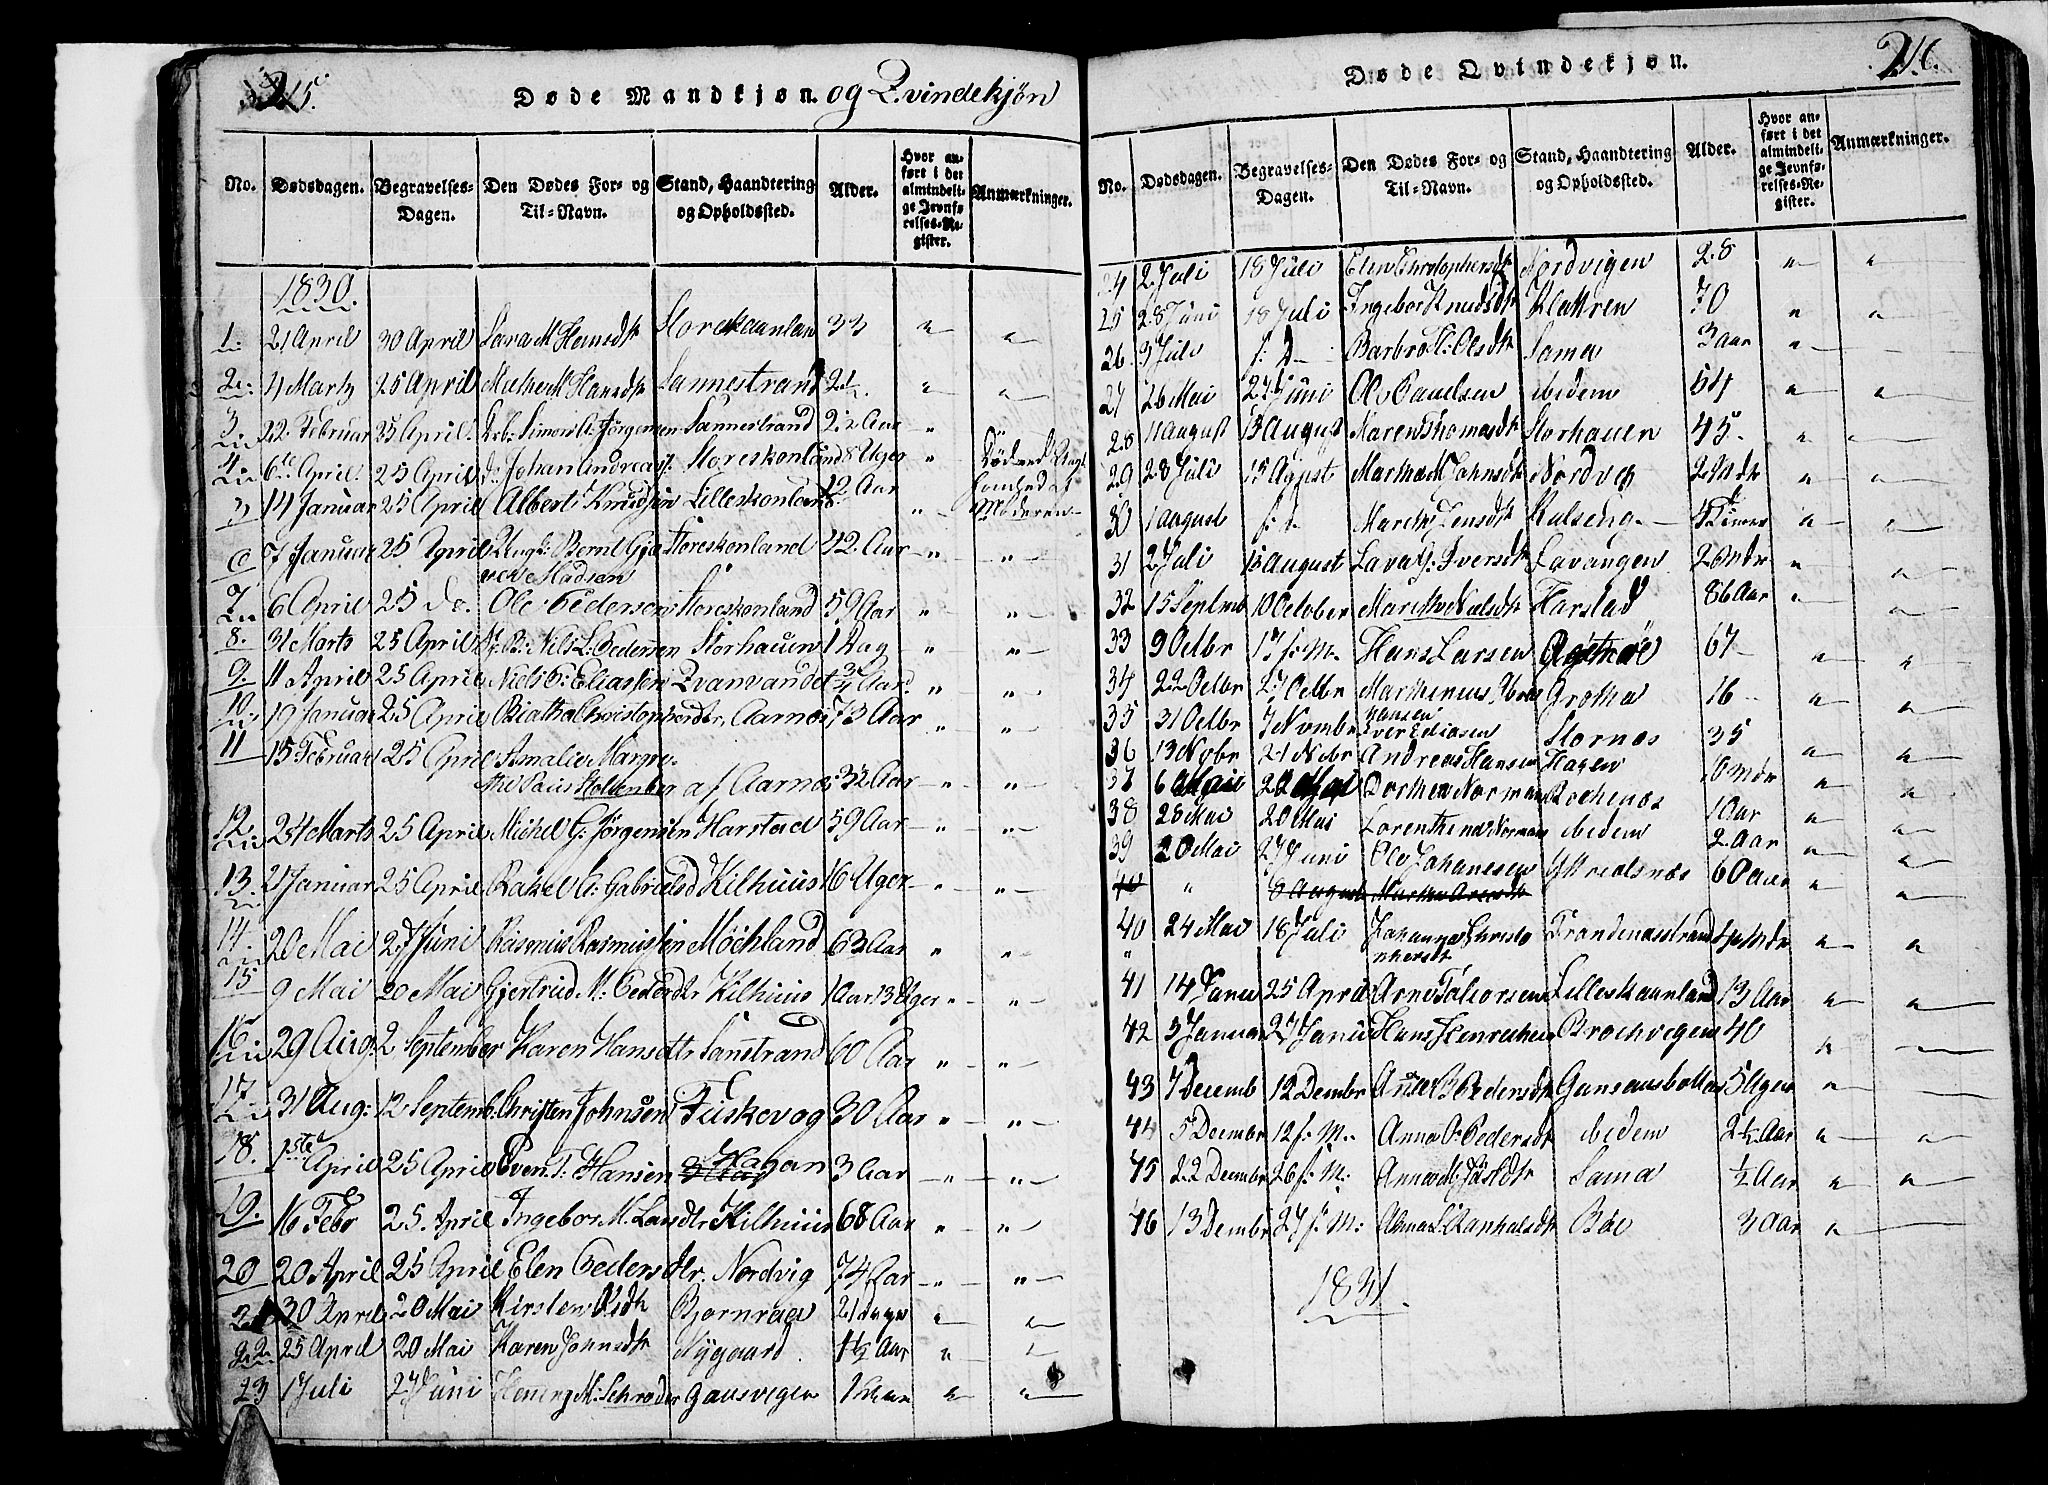 215.
Døde Mandkjøn. og Qvindekjøn
No. Dødsdagen. Begravelses-Dagen. Den Dødes For- og Til-Navn. Stand, Haandtering og Opholdssted. Alder. Hvor anført i det almindelige Jevnførelses-Register. Anmærkninger.
1830.
1. 21 April 30 April Sara M Hemsdtr Storeskaanland 33 " "
2. 4 Marts 25 April M Hansdtr Sannestrand " "
3 22. Februar 25 April. Simon Jørgensen Sannestrand 2½ Aar "
4. 6te April. 25 April Do Johan Andreas Storeskonland 8 Uger " Død ved Uagtsomhed af Moderen
14 Januar 25 April Albert Knudsen Lilleskonland 12 Aar "
6 7 Januar 25 April Ungk: Bernt Gjæver Madsen Storeskonland 42 Aar " "
7 6 April 25 do. Ole Pedersen Storeskonland 59 Aar " "
8. 31 Marts 25 April Nils L: Pedersen Storhauen 1 Dag " "
9. 11 April 25 April Niels P: Eliassen Qvanvandet ¾ Aar. " "
10. 19 Januar 25 April Christophersdtr, Aarnæs 73 Aar " "
11 15 Februar 25 April Amalie Margrethe Holdenber af Aarnæs 3½ Aar " "
12. 24 Marts 25 April Michel G: Jørgensen Harstad 59 Aar " "
13. 21 Januar 25 April Rakel A: Gabrielsd Kilhuus 16 Uger " "
14. 20 Mai 27 Juni Rasmus Rasmussen Møchland 63 Aar " "
15 9 Mai 20 Mai Gjertrud M: Pedersdtr Kilhuus 1 Aar 13 Uger " "
16 29 Aug: 2 September Karen Hansdttr Sanstrand 60 Aar " "
17. 31 Aug: 12 Septemb. Christen Johnsen Fuskevog 30 Aar " "
18. 1ste April 25 April Even T: Hansen Hagan 3 Aar " "
19. 16 Febr 25. April Ingebor M. Kilhuus 68 Aar " "
20 20 April 25 April Elen Pedersdtr. Nordvig 74 Aar " "
21 30 April 20 Mai Kirsten Bjørnraae 21 Dage " "
22 25 April 20 Mai Karen Johnsdtr Nygaard. 1½ Aar " "
23 1 Juli 27 Juni Hening M: Schrøder Gausvigen 1 Aar " "
216.
Døde Qvindekjøn.
No. Dødsdagen. Begravelses-Dagen. Den Dødes For- og Til-Navn. Stand, Haandtering og Opholdssted. Alder. Hvor anført i det almindelige Jevnførelses-Register. Anmærkninger.
24 2 Juli 18 Juli Elen Christophersdtr Nordvigen 28 " "
25 28 Juni 18 Juli Ingebor Knudsdtr Klattren 70 " "
26. 3 Juli Barbro Olsdtr Sama 3 aar " "
27 26 Mai 27 Juni Ole Paulsen ibidem 54 " "
28 11 august 15 August Maren Thomasdtr Storhauen 45. " "
29 28 Juli 15 Agust Marthe M Johnsdtr Nordvig 2 Mdr " "
30 1 august Marith Jensdtr Kulseng 4 Timer " "
31 2 Juli 15 august Iversdtr Lavangen 2 Mdr " "
32 15 Septmb 10 October Marithe Nielsdtr Harstad 86 Aar " "
33 9 Octbr 17 f: M. Hans Larsen 67 " "
34 22 Octbr 27 Octbr Marthinus Hansen Grøtha 16 " "
35 31 Octbr 7 Novmbr Iver Eliasen Stornæs 35 " "
36 13 Novbr 21 Novbr Andreas Hansen Hagen 10 Mdr " "
37 6 Mai 20 Mai Dorthea Norman Rochenæs 1 Aar " "
38 28 Mai 20 Mai Lorenthine Norman ibidem 2 Aar " "
39 20 Mai 27 Juni Ole Johannesen 60 Aar " "
" 8 August Marthe
40 24 Mai 18 Juli Johanna Christophersdt Trondenæsstrand Mdr " "
41 14 Janu 25 April Arne Lilleskaanland 13 Aar " "
42 3 Januar 27 Janu Hans Henrichsen Brochvigen 40 " "
43 7 Decemb 12 Dembr Pedersdtr 5 Uger " "
44 5 Decembr 12 f: M. Anna O: Pedersdtr ibedem 2½ Aar " "
45 22 Decembr 26 f: M: Anna M Sama ½ Aar " "
46 13 Dembr 27 f: M: Anna Bøe 3 Aar "
1831.